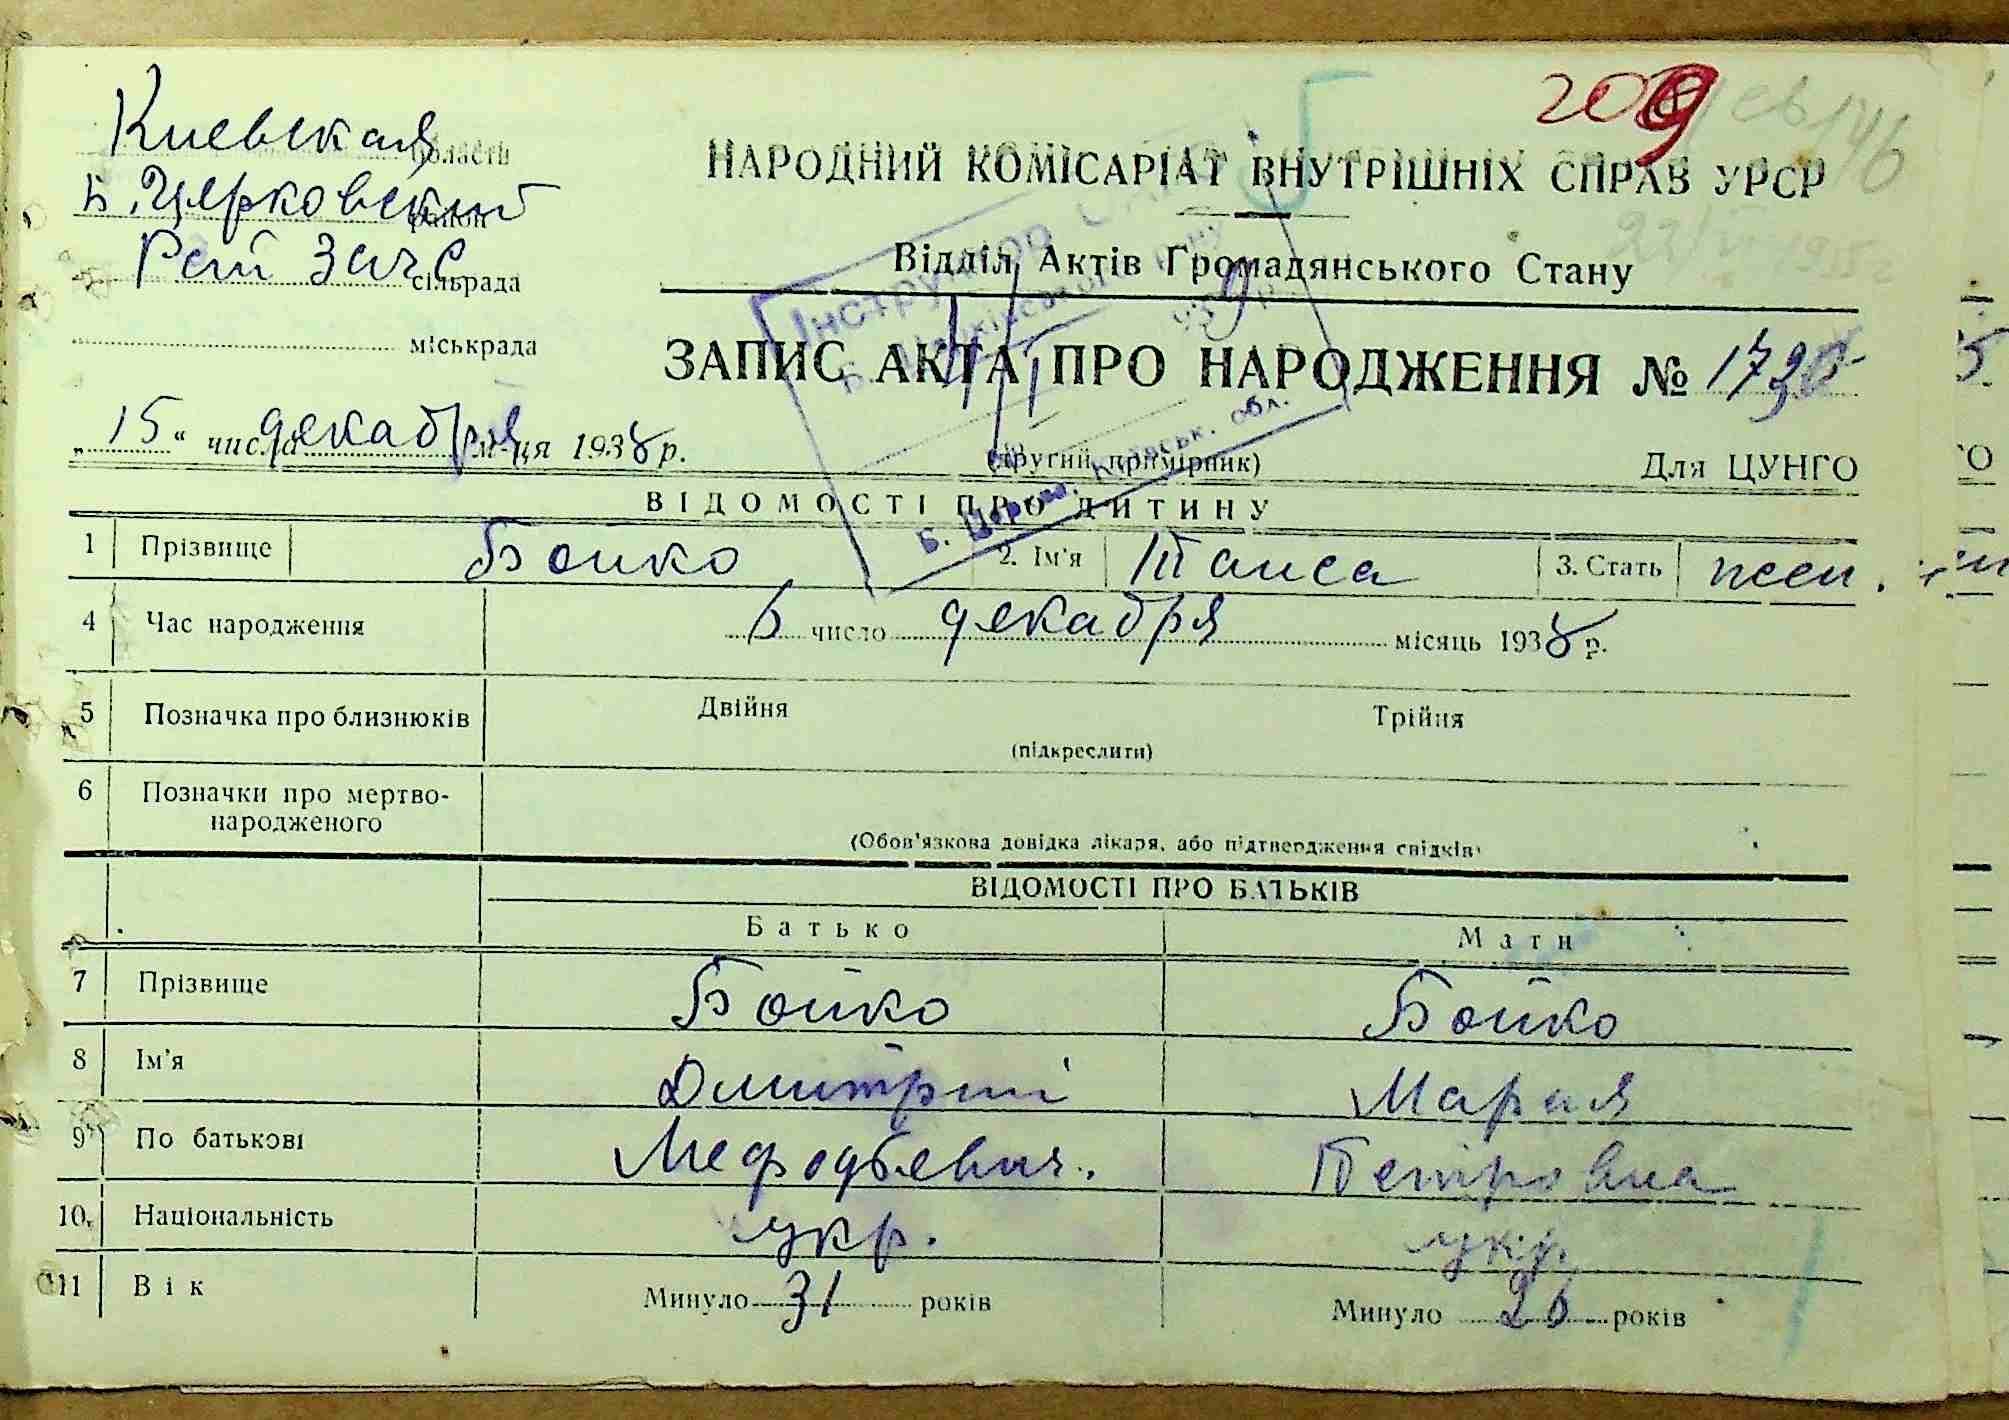 209
Киевская області
Б. Церковский район
Рай Загс сільрада
міськрада
НАРОДНИЙ КОМІСАРІАТ ВНУТРІШНІХ СПРАВ УРСР
Відділ Актів Громадянського Стану
ЗАПИС АКТА ПРО НАРОДЖЕННЯ №
„15“ числа декабря м-ця 1938 р.
(другий примірник)
Для ЦУНГО
Інструктор
Б. Церква, Київськ. обл.
ВІДОМОСТІ ПРО ДИТИНУ
1 Прізвище Бойко 2. Ім'я Таиса 3. Стать жен.
4 Час народження 6 число декабря місяць 1938 р.
5 Позначка про близнюків Двійня Трійня
(підкреслити)
6 Позначки про мертво-
народженого
(Обов'язкова довідка лікаря, або підтвердження свідків)
ВІДОМОСТІ ПРО БАТЬКІВ
Батько Мати
7 Прізвище Бойко Бойко
8 Ім'я Дмитрий Мария
9 По батькові Мефодьевич. Петровна
10. Національність укр. укр.
11 Вік Минуло 31 років Минуло 26 років